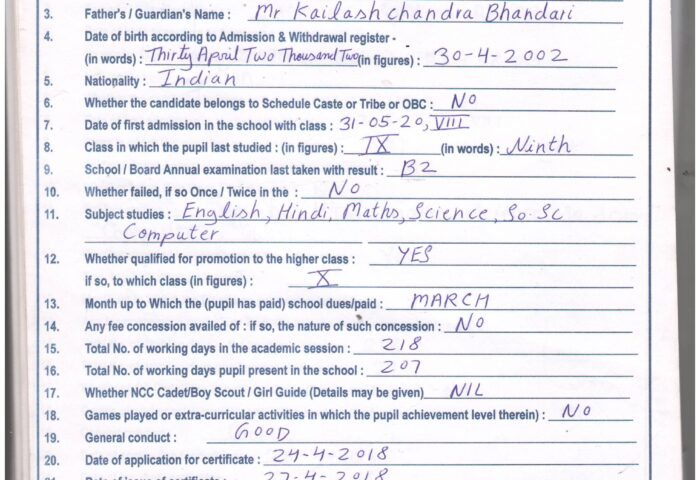 3. Father's / Guardian's Name : Mr Kailash chandra Bhandari
4. Date of birth according to Admission & Withdrawal register -
(in words) : Thirty April Two Thousand Two (in figures) : 30-4-2002
5. Nationality : Indian
6. Whether the candidate belongs to Schedule Caste or Tribe or OBC : NO
7. Date of first admission in the school with class : 31-05-20, VIII
8. Class in which the pupil last studied : (in figures) : IX (in words) : Ninth
9. School / Board Annual examination last taken with result : B2
10. Whether failed, if so Once / Twice in the : NO
11. Subject studies : English, Hindi, Maths, Science, So. Sc
Computer
12. Whether qualified for promotion to the higher class : YES
if so, to which class (in figures) : X
13. Month up to Which the (pupil has paid) school dues/paid : MARCH
14. Any fee concession availed of : if so, the nature of such concession : NO
15. Total No. of working days in the academic session : 218
16. Total No. of working days pupil present in the school : 207
17. Whether NCC Cadet/Boy Scout / Girl Guide (Details may be given) NIL
18. Games played or extra-curricular activities in which the pupil achievement level therein) : NO
19. General conduct : GOOD
20. Date of application for certificate : 24-4-2018
21. Date of issue of certificate : 27-4-2018